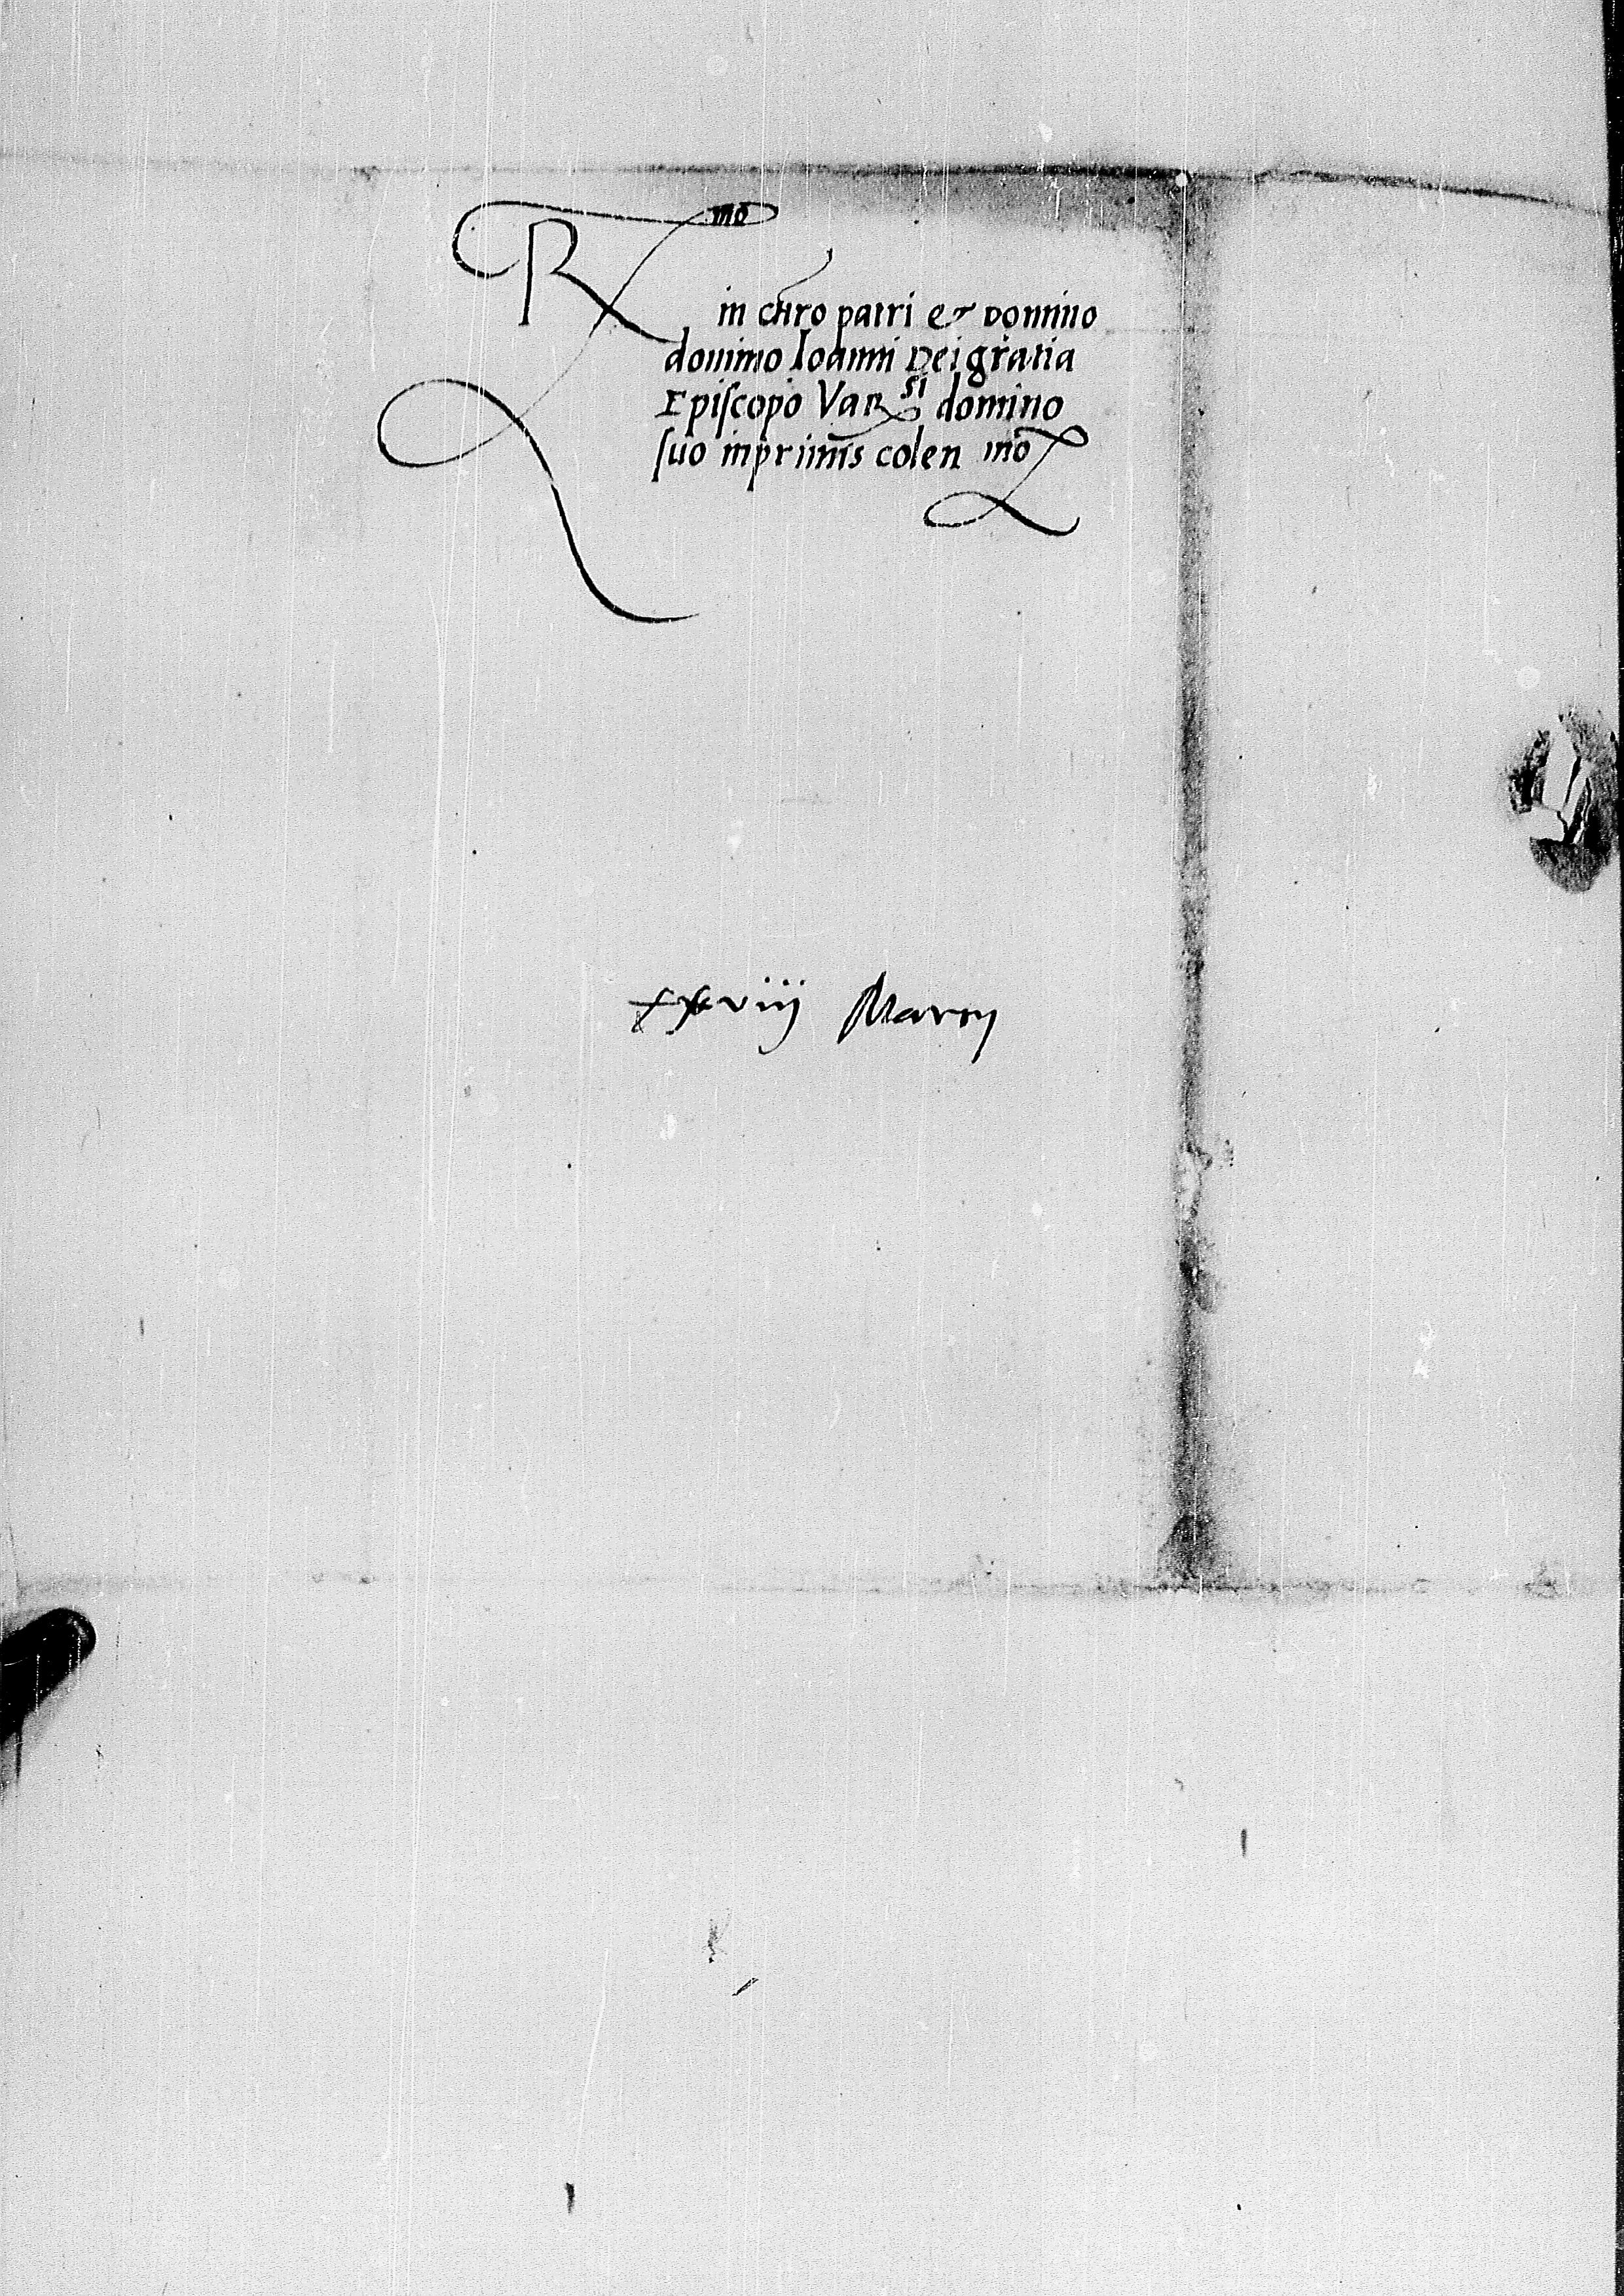 Rmo
in chro patri et Domino
domino Ioanni Dei gratia
Episcopo Varsi domino
suo inprimis colen mo
xxviij Marcij